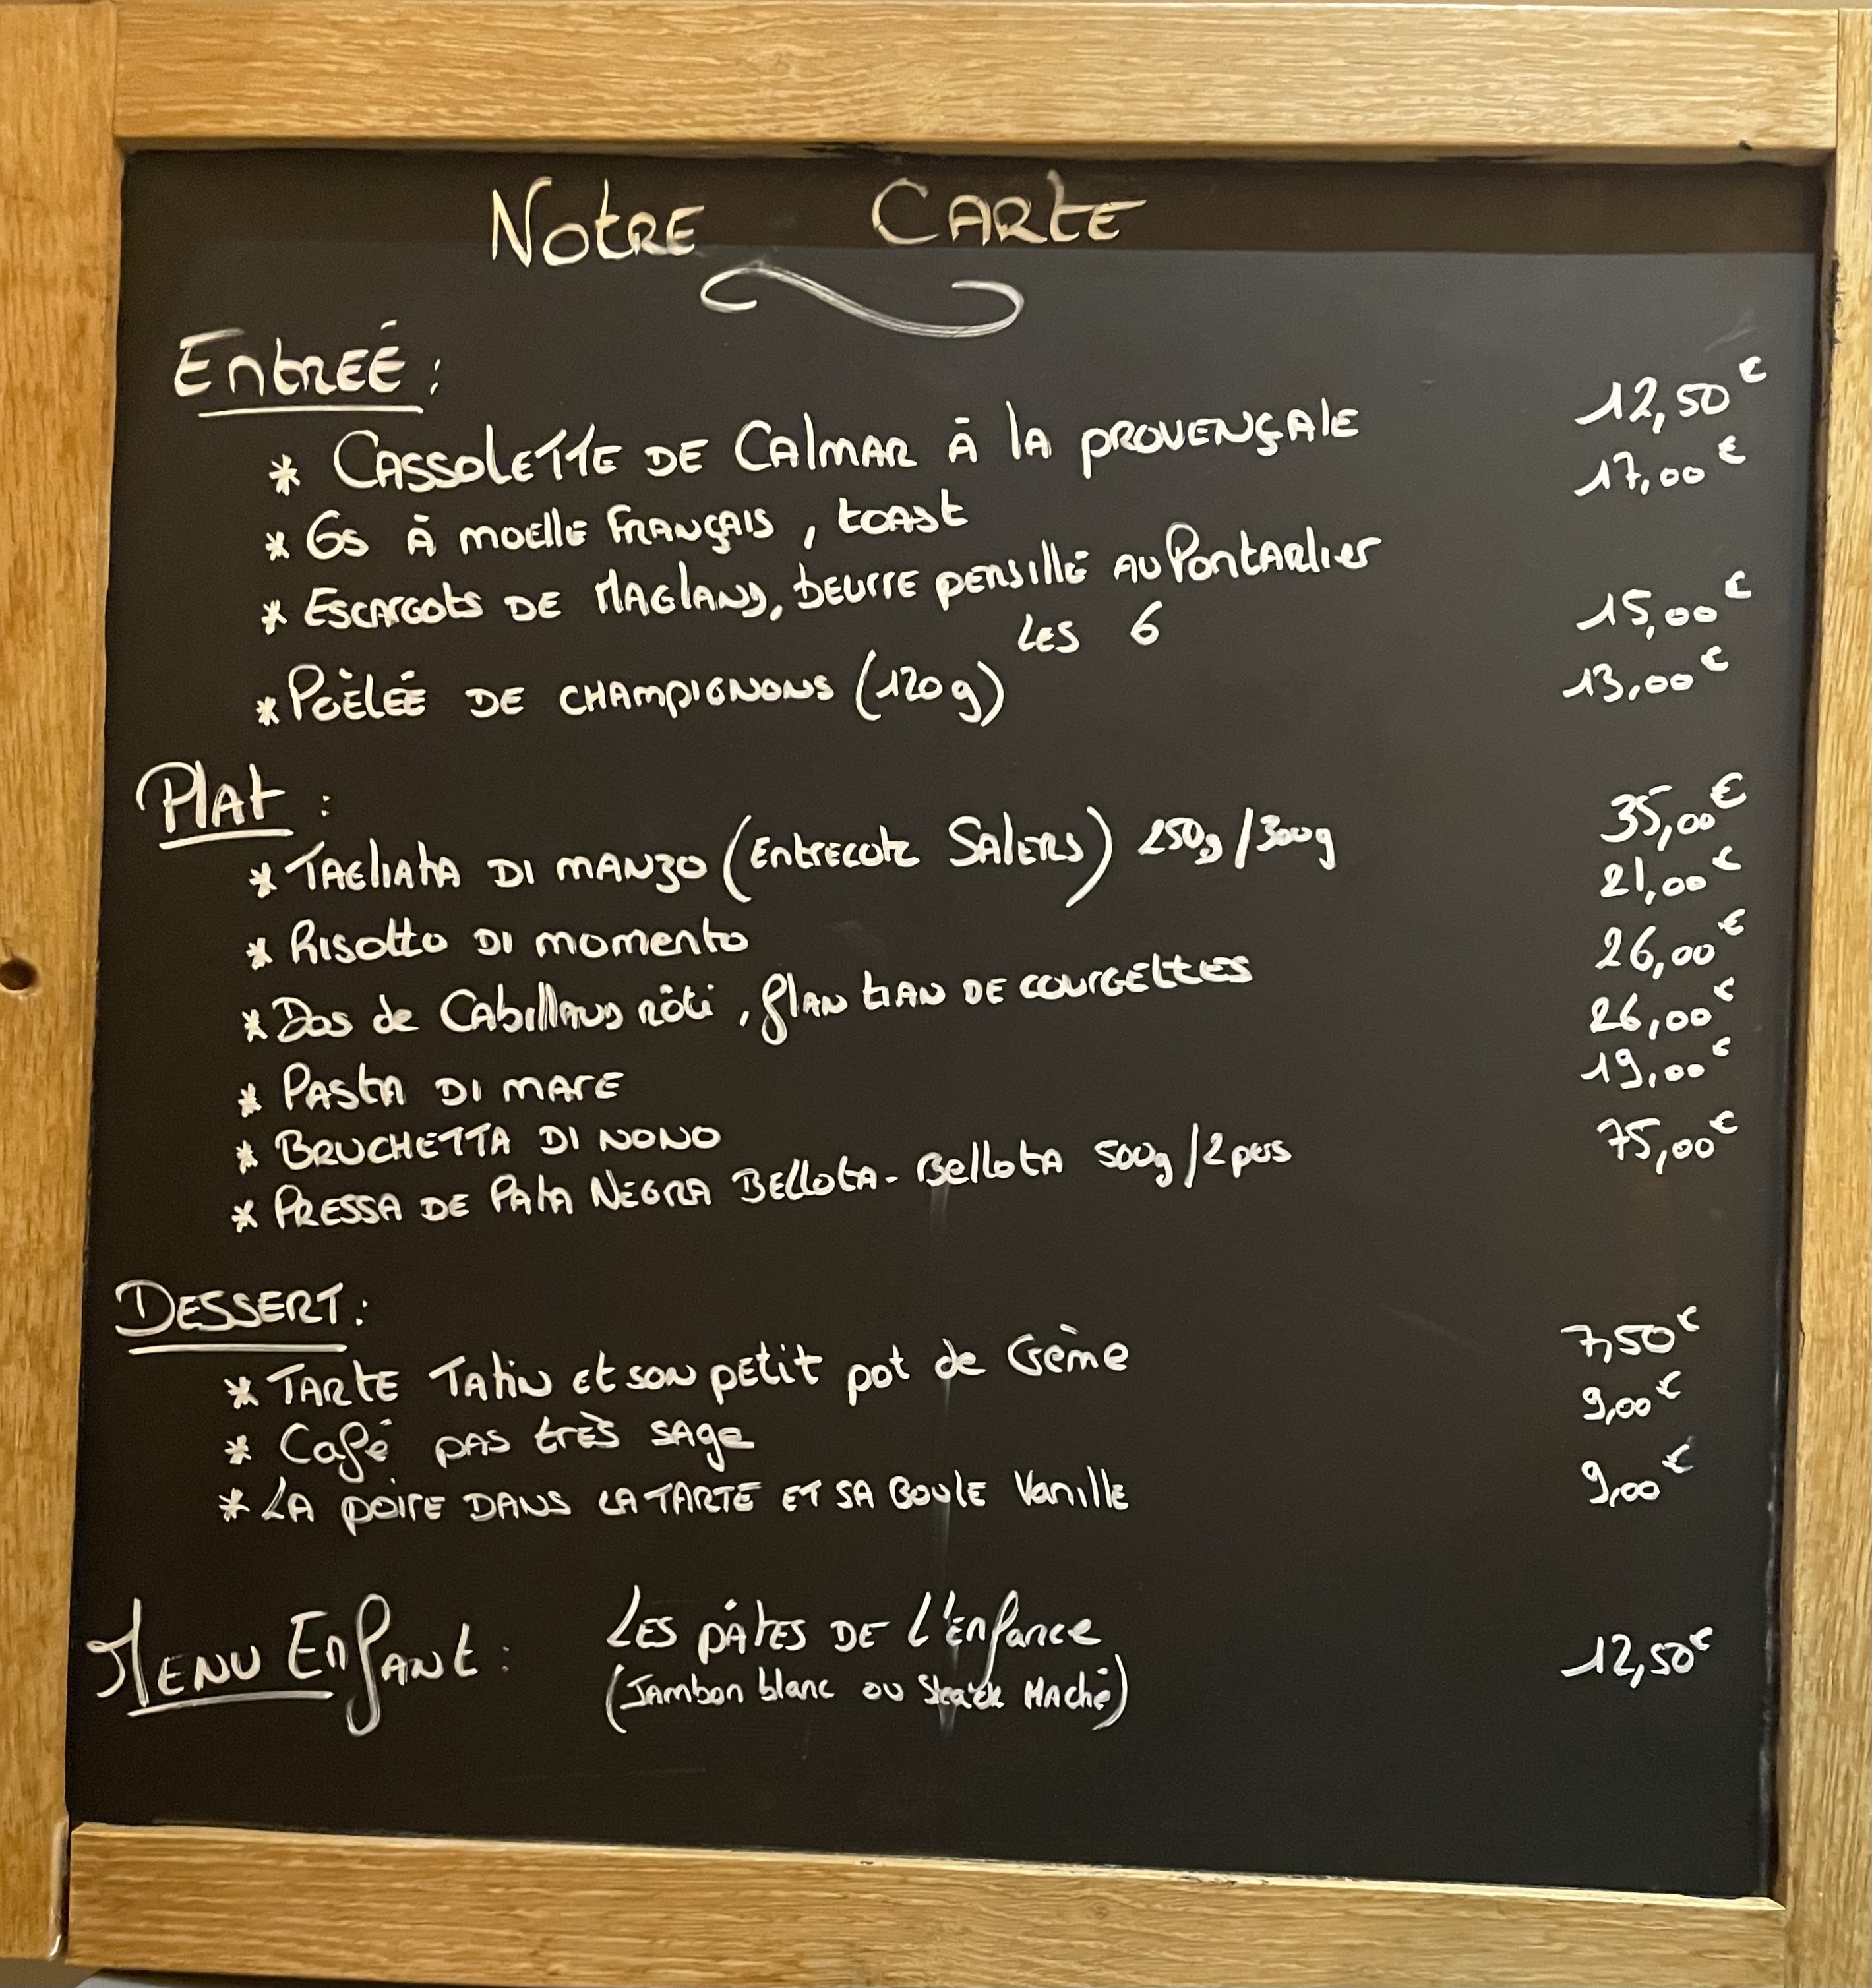 NOTRE CARTE
ENTREÉ :
* CASSOLETTE DE CALMAR À LA PROVENÇALE 12,50€
* OS À MOELLE FRANÇAIS, TOAST 17,00€
* ESCARGOTS DE MAGLAND, BEURRE PERSILLÉ AU PONTARLIER
LES 6 15,00€
* POÈLÉE DE CHAMPIGNONS (120g) 13,00€
PLAT :
* TAGLIATA DI MANZO (ENTRECOTE SALERS) 250g/300g 35,00€
* RISOTTO DI MOMENTO 21,00€
* Dos de CABILLAUD RÔTI, flAN tiAN DE COURGETTES 26,00€
* PASTA DI MARE 26,00€
* BRUCHETTA DI NONO 19,00€
* PRESSA DE PATA NEGRA BELLOTA-BELLOTA 500g/2pers 75,00€
DESSERT :
* TARTE TATIN ET SON PETIT pot de Crème 7,50€
* Café PAS TRÈS SAGE 9,00€
* LA POIRE DANS LA TARTE ET SA BOULE Vanille 9,00€
MENU ENFANT : LES PÂTES DE L'ENFANCE 12,50€
(Jambon blanc ou Steack Haché)